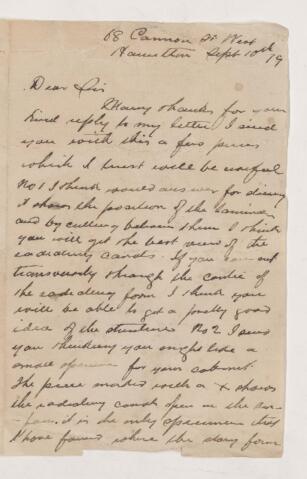 68 Cannon St West
Hamilton Sept 10th /9
Dear Sir
Many thanks for your
kind reply to my letter I send
you with this a few pieces
which I trust will be useful
No 1 I think would answer for dicing
it shows the position of the laminae
and by cutting between them I think
you will get the best view of the
radiating canals. If you cut
transversly through the centre of
the radiating form I think you
will be able to get a pretty good
idea of the structures No 2 I send
you thinking you might like a
small specimen for your cabinet
The piece marked with a x shows
the radiating canals open on the
it is the only specimen that
I have found where the